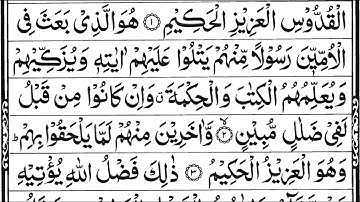 الْقُدُّوْسِ الْعَزِيْزِ الْحَكِيْمِ ﴿۱﴾ هُوَ الَّذِيْ بَعَثَ فِي
الْاُمِّيّٖنَ رَسُوْلًا مِّنْهُمْ يَتْلُوْا عَلَيْهِمْ اٰيٰتِهٖ وَيُزَكِّيْهِمْ
وَيُعَلِّمُهُمُ الْكِتٰبَ وَالْحِكْمَةَ ۗ وَاِنْ كَانُوْا مِنْ قَبْلُ
لَفِيْ ضَلٰلٍ مُّبِيْنٍ ﴿۲﴾ وَّاٰخَرِيْنَ مِنْهُمْ لَمَّا يَلْحَقُوْا بِهِمْ ؕ
وَهُوَ الْعَزِيْزُ الْحَكِيْمُ ﴿۳﴾ ذٰلِكَ فَضْلُ اللّٰهِ يُؤْتِيْهِ